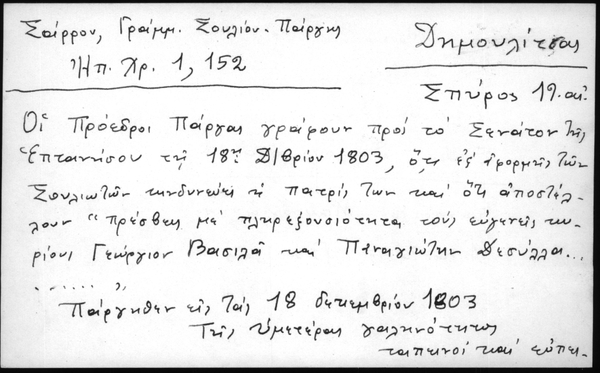 Σάρρου, Γράμμ. Σουλίου-Πάργης
Ἠπ. Χρ. 1, 152
Δημουλίτσας
Σπύρος 19. αἰ.
Οἱ Πρόεδροι Πάργας γράφουν πρός τό Σενάτον τῆς
Ἑπτανήσου τῇ 18ῃ Δ/βρίου 1803, ὅτι ἐξ ἀφορμῆς τῶν
Σουλιωτῶν κινδυνεύει ἡ πατρίς των καί ὅτι ἀποστέλ-
λουν "πρέσβεις μέ πληρεξουσιότητα τούς εὐγενεῖς κυ-
ρίους Γεώργιον Βασιλᾶ καί Παναγιώτην Δεσύλλα...
......,
Πάργηθεν εἰς τάς 18 δεκεμβρίου 1803
Τῆς ὑμετέρας γαληνότητος
ταπεινοί καί εὐπει-